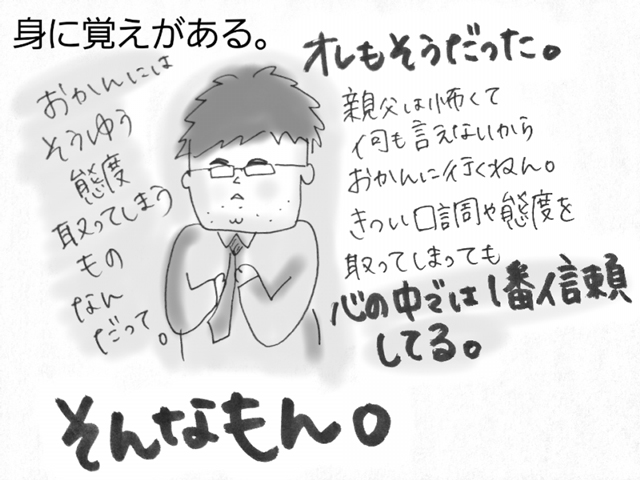 身に覚えがある。
おかんには
そうゆう
態度
取ってしまう
もの
なん
だって。
オレもそうだった。
親父は怖くて
何も言えないから
おかんに行くねん。
きつい口調や態度を
取ってしまっても
心の中では1番信頼
してる。
そんなもん。